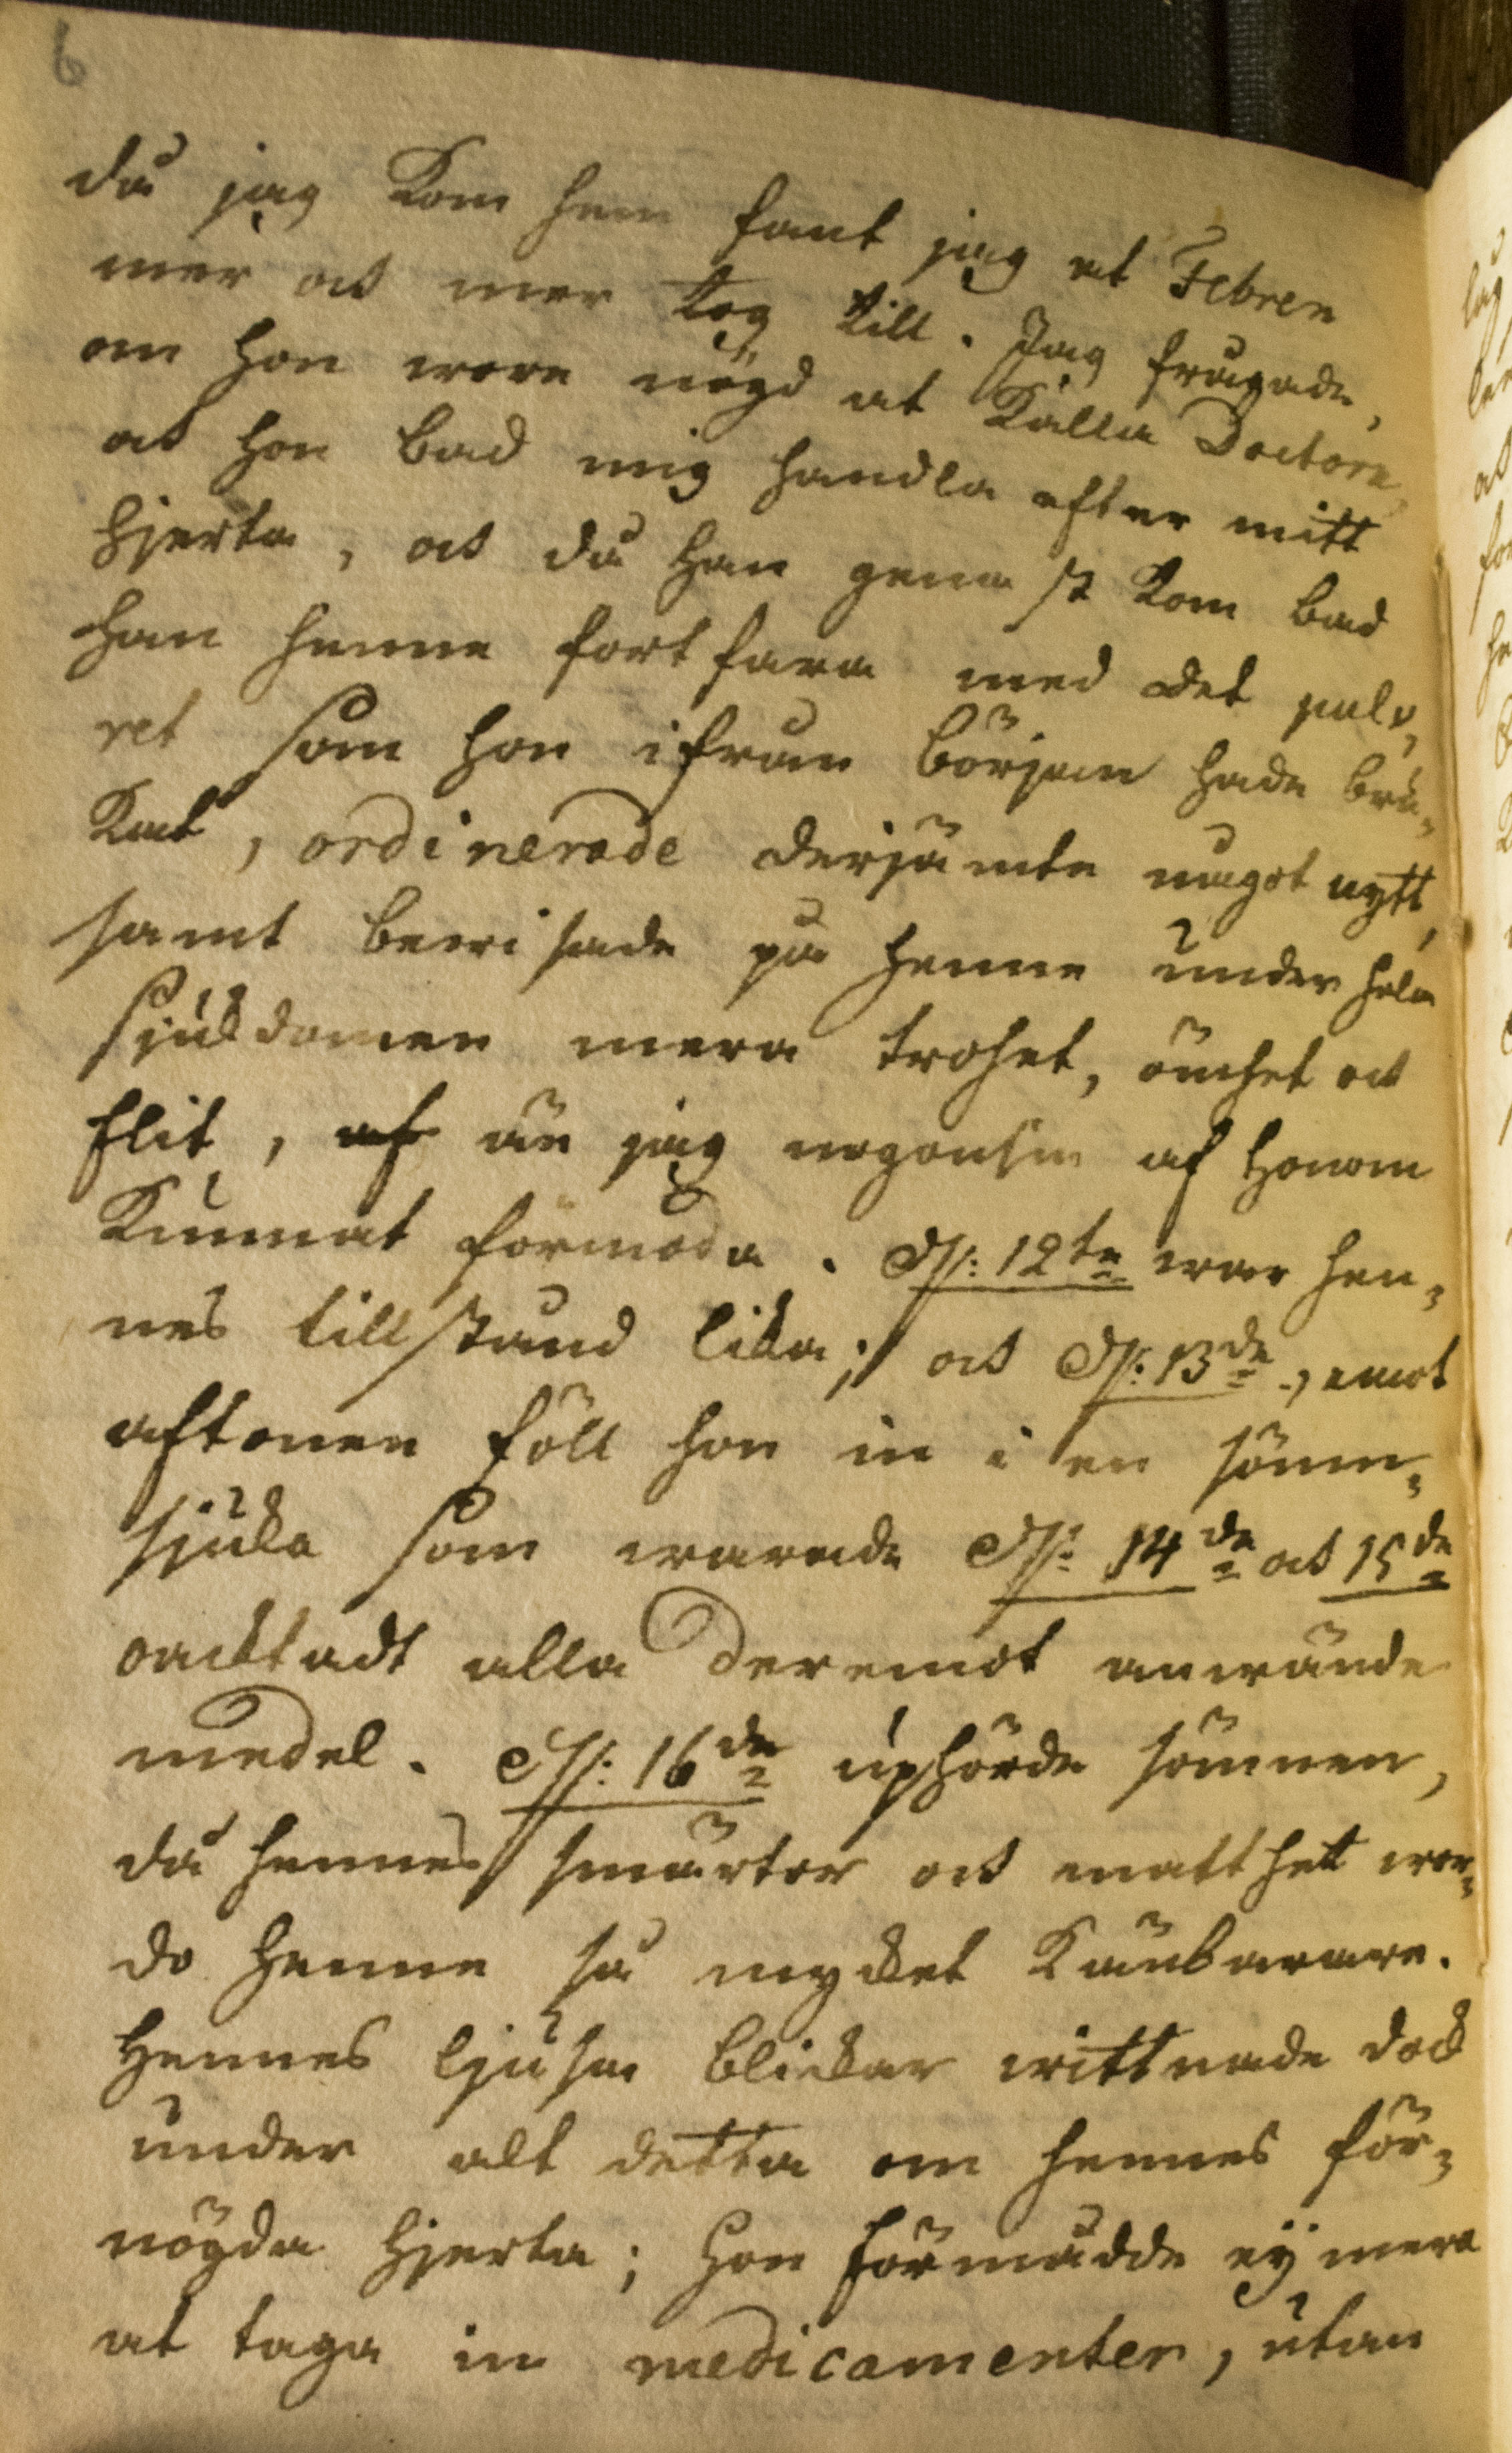 6
då jag kom hem fant jag at Febren
mer och mer tog till. Jag frågade,
om hon wore nögd at kalla Doctorn,
och hon bad mig handla efter mitt
hjerta, och då han genast kom bad
han henne fortfara med det pulv,
ret som hon ifrån början hade bru-
kat, ordinerade derjämte något nytt,
samt bewisade på henne under hela
sjukdomen mera trohet, ömhet och
flit, af än jag nogonsin af honom
kunnat förmoda. d: 12te war hen-
nes tillstånd lika; och d: 13de, emot
aftonen föll hon in i en sömn-
sjuka som warade d: 14de och 15de
oacktadt alla deremot anwände
medel. d: 16de uphörde sömnen,
då hennes smärtor och matthet wor-
do henne så mycket kånbarare.
Hennes ljusa blickar wittnade dock
under alt detta om hennes för-
nögda hjerta; hon förmådde ej mera
at taga in medicamenter, utan